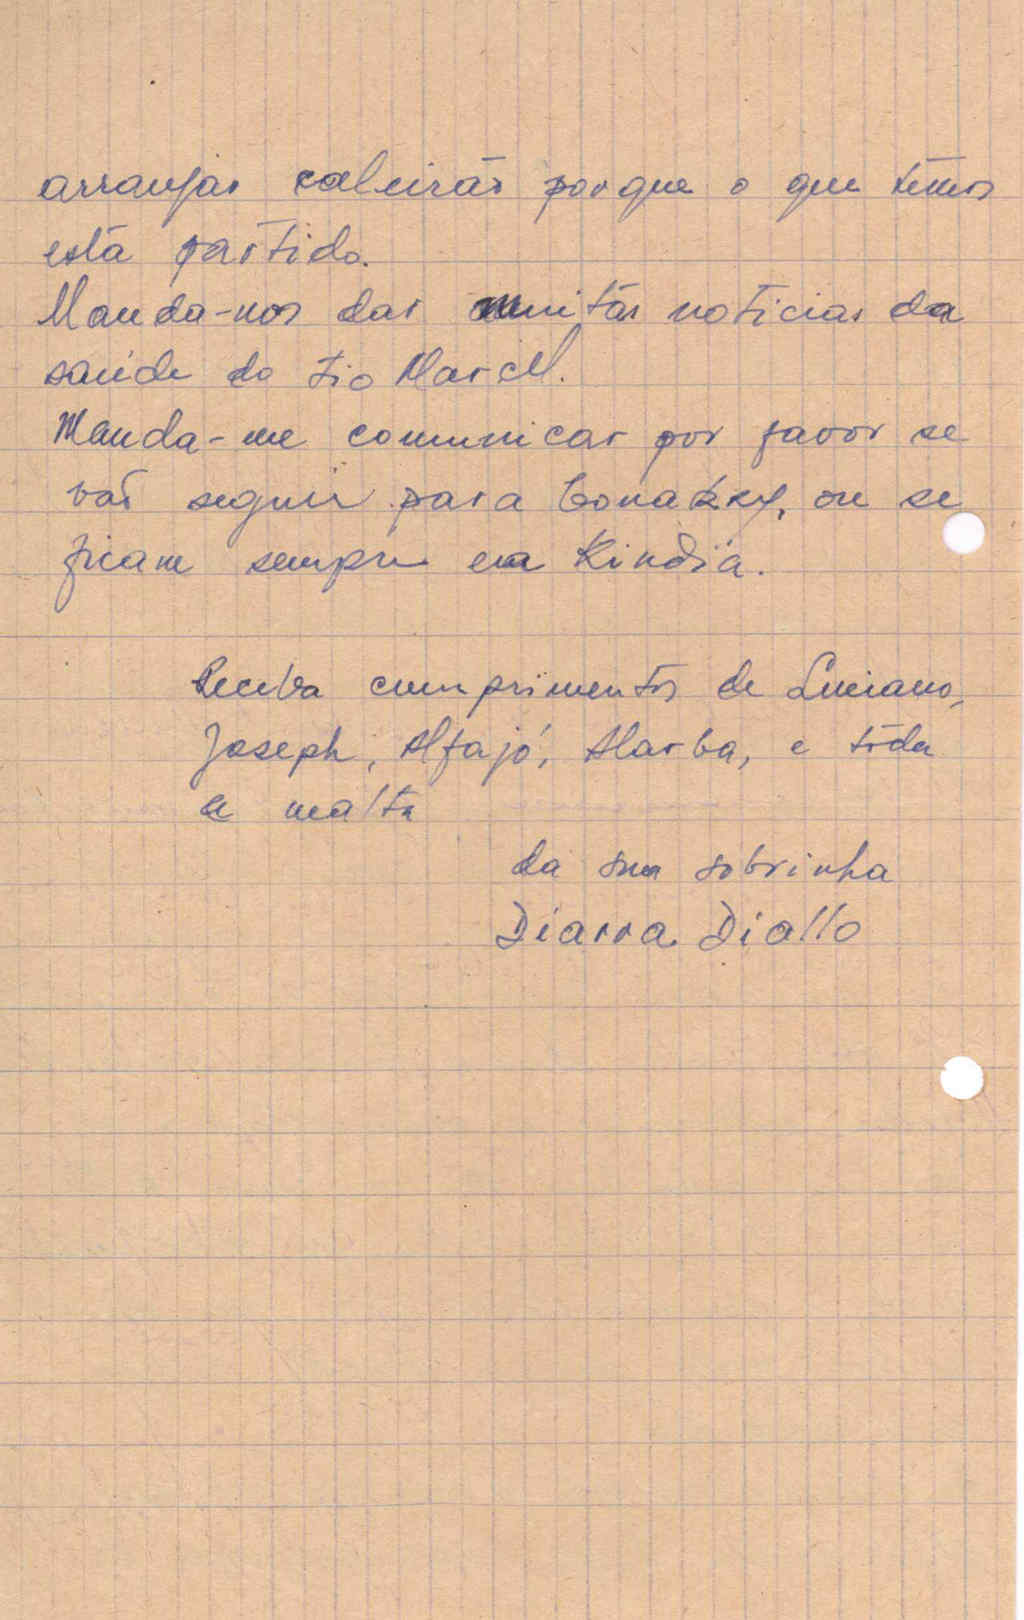 arranjar caleirãs porque o que têmos
está partido.
Manda-nos dar muitas noticias da
saúde do tio Marcel.
Manda-me comunicar por favor se
vaĩ seguir para Conakry, ou se
ficam sempre em Kindia.
Receba cumprimentos de Luciano,
Joseph, Alfajó, Marba, e tôda
a malta
da sua sobrinha
Diarra Diallo